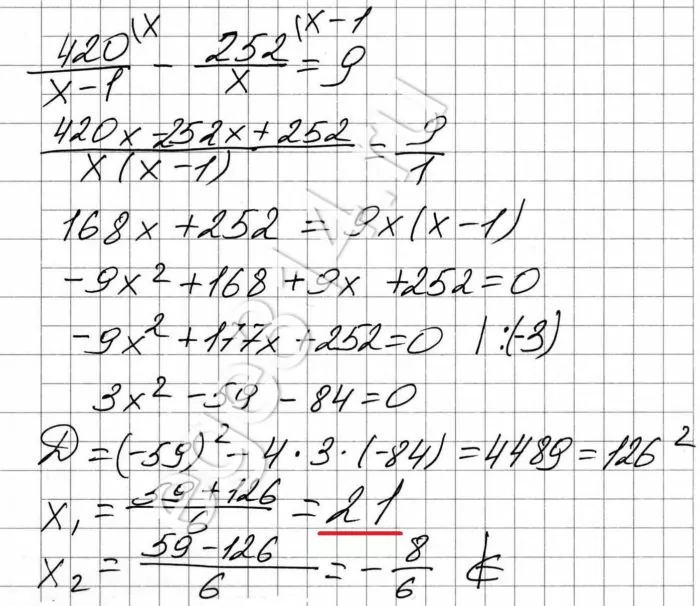 420(x / x-1 - 252(x-1 / x = 9
420x-252x+252 / x(x-1) = 9/1
168x+252 = 9x(x-1)
-9x²+168+9x+252=0
-9x²+177x+252=0 |:(-3)
3x²-59-84=0
D=(-59)²-4·3·(-84)=4489=126²
x₁ = 59+126 / 6 = 21
x₂ = 59-126 / 6 = -8/6 ¢